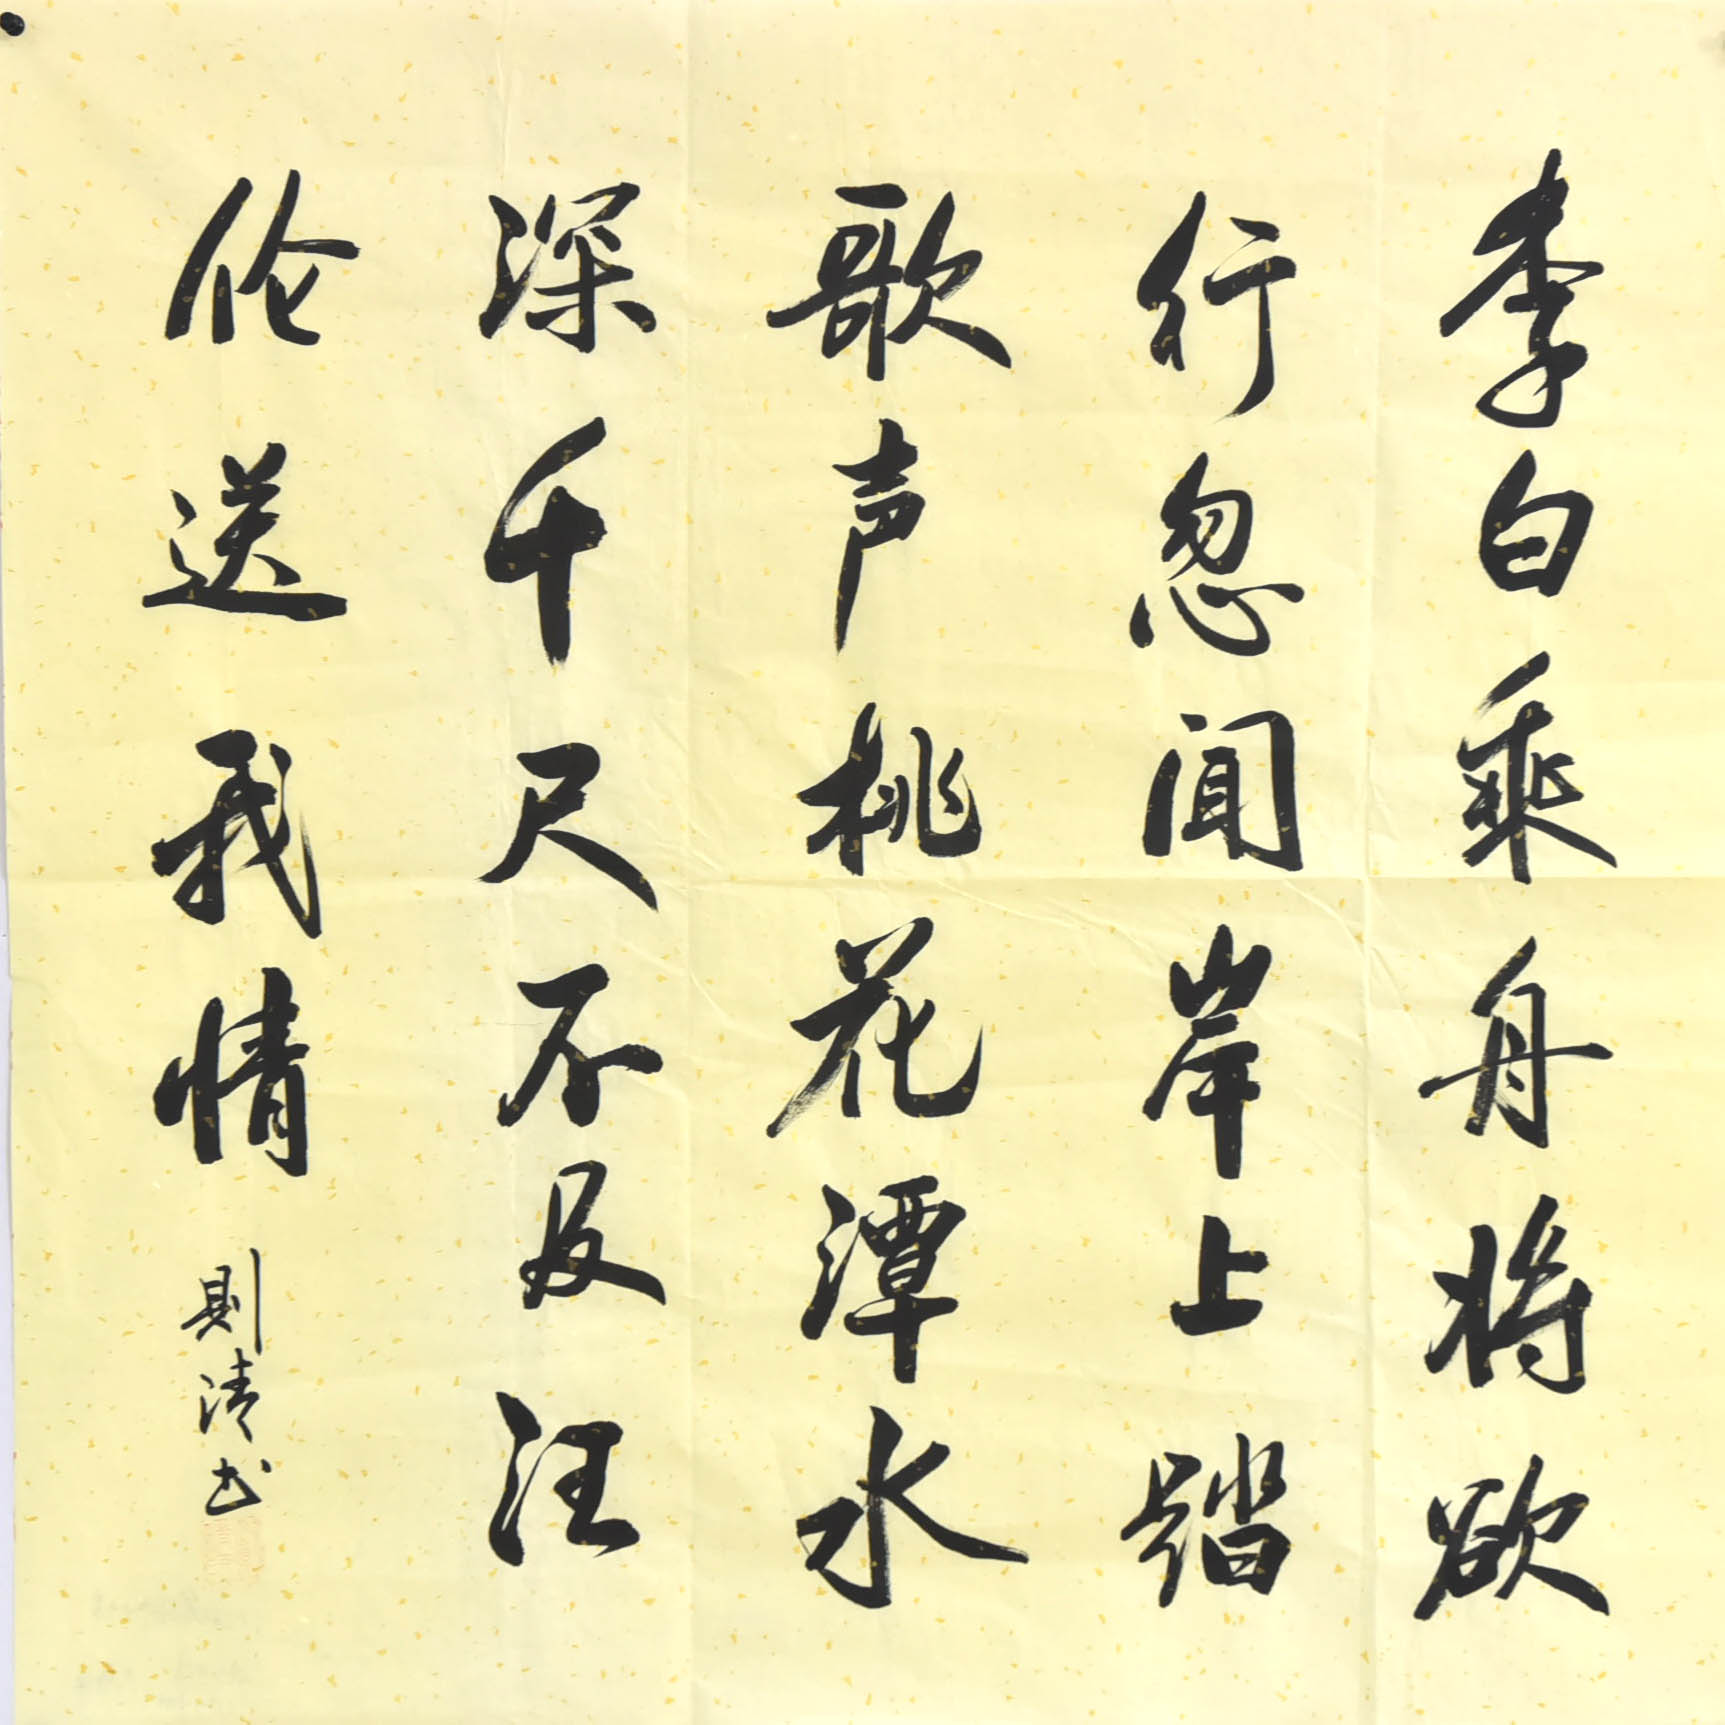 李白乘舟将欲
行忽闻岸上踏
歌声桃花潭水
深千尺不及汪
伦送我情
则清书